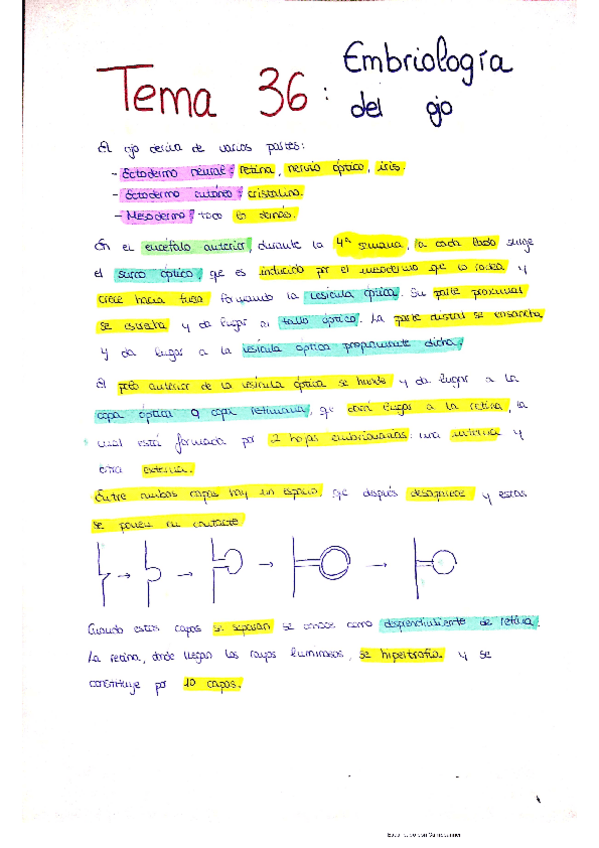 Tema 36: Embriología
del ojo
El ojo deriva de varias partes:
- Ectodermo neural: retina, nervio óptico, iris.
- Ectodermo cutáneo: cristalino.
- Mesodermo: todo lo demás.
En el encéfalo anterior, durante la 4ª semana, a cada lado surge
el surco óptico, que es inducido por el mesodermo que lo rodea y
crece hacia fuera formando la vesícula óptica. Su parte proximal
se estrecha y da lugar al tallo óptico. La parte distal se ensancha
y da lugar a la vesícula óptica propiamente dicha.
El polo anterior de la vesícula óptica se hunde y da lugar a la
copa óptica o copa retiniana, que dará lugar a la retina, la
cual está formada por 2 hojas embrionarias: una interna y
otra externa.
Entre ambas capas hay un espacio, que después desaparece y estas
se ponen en contacto
Cuando estas capas se separan se conoce como desprendimiento de retina.
La retina, donde llegan los rayos luminosos, se hipertrofia. y se
constituye por 10 capas.
Escaneado con CamScanner